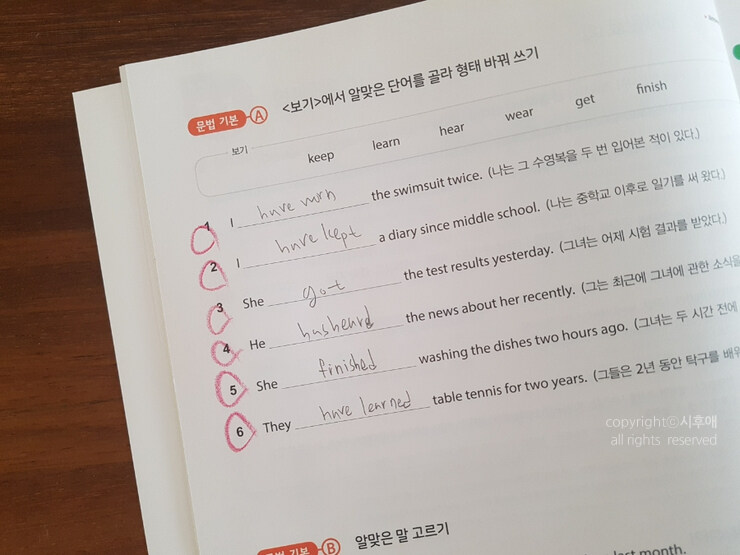 <보기>에서 알맞은 단어를 골라 형태 바꿔 쓰기
문법 기본 A
보기
keep learn hear wear get finish
1 I have worn the swimsuit twice. (나는 그 수영복을 두 번 입어본 적이 있다.)
2 I have kept a diary since middle school. (나는 중학교 이후로 일기를 써 왔다.)
3 She got the test results yesterday. (그녀는 어제 시험 결과를 받았다.)
4 He has heard the news about her recently. (그는 최근에 그녀에 관한 소식을
5 She finished washing the dishes two hours ago. (그녀는 두 시간 전에
6 They have learned table tennis for two years. (그들은 2년 동안 탁구를 배워
copyrightⓒ시후애
all rights reserved
문법 기본 B
알맞은 말 고르기
last month.